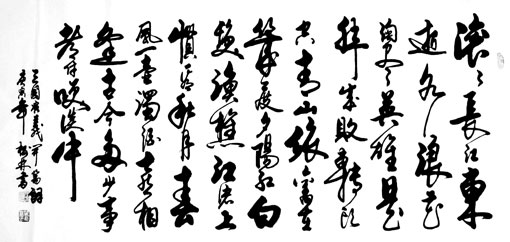 滚〻長江東
逝水浪花
淘尽英雄是
非成敗轉頭
空青山依舊在
幾度夕陽紅白
髮漁樵江渚上
慣看秋月春
風一壺濁酒喜相
逢古今多少事
都付笑談中
三國演義開篇詞
庚寅年 書